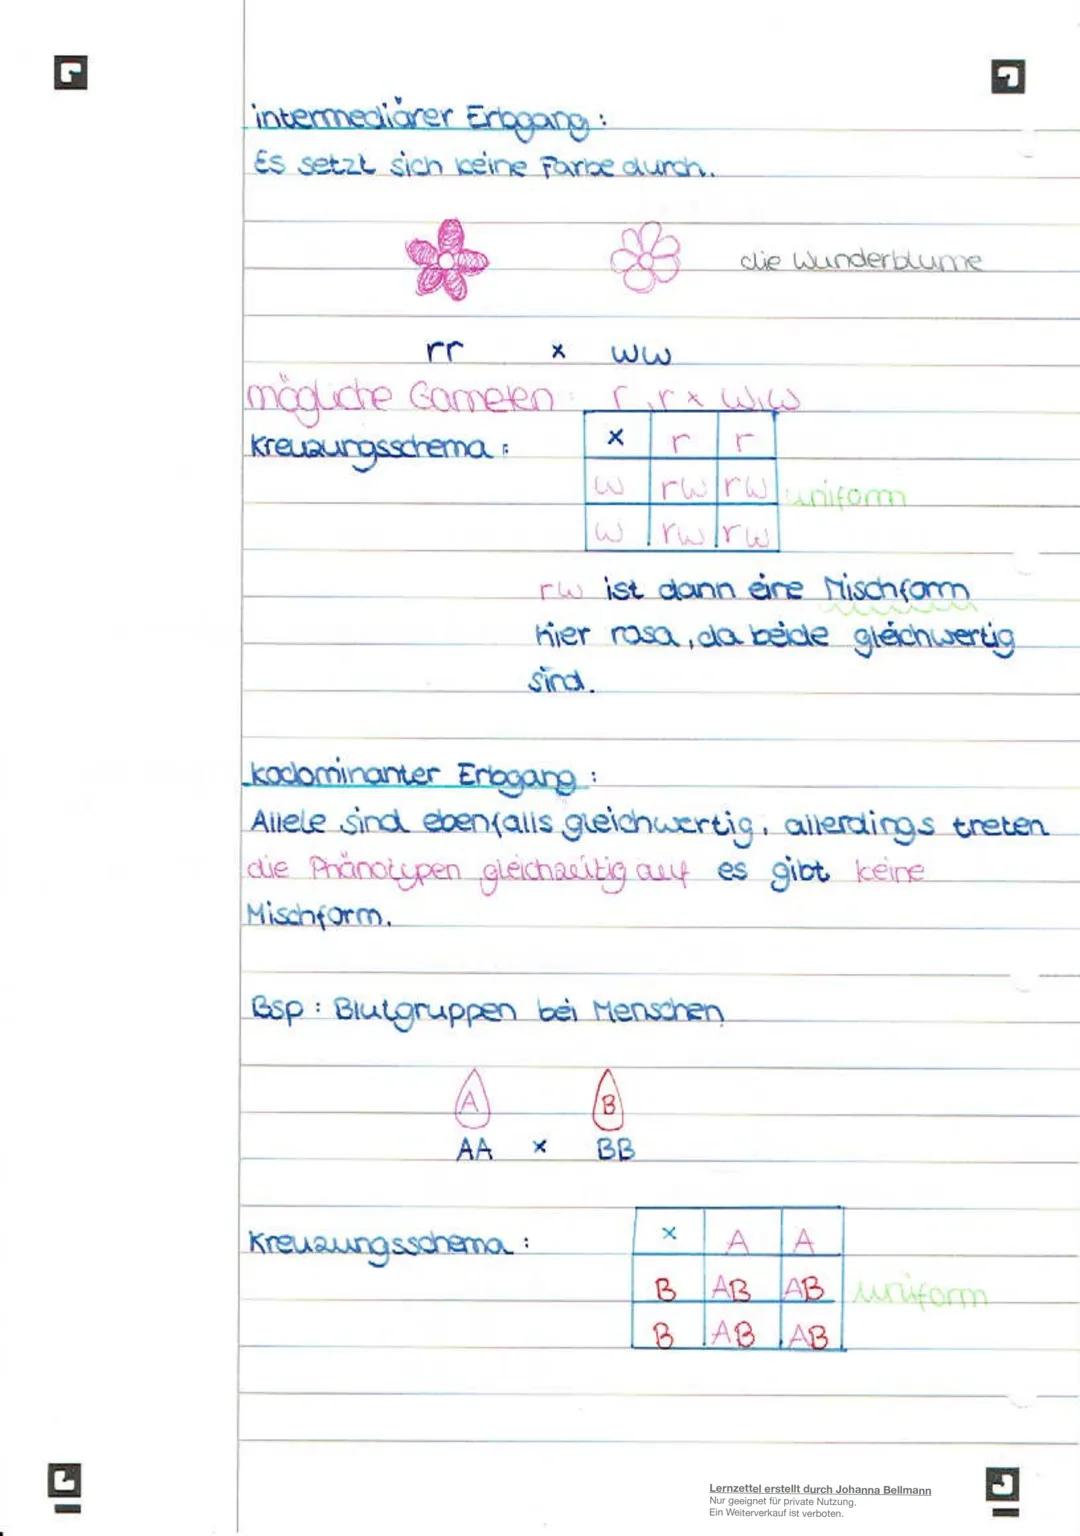 intermediärer Erbgang:
Es setzt sich keine Farbe durch.
die Wunderblume
rr x ww
mögliche Gameten: r, r x w, w
Kreuzungsschema:
x r r
w rw rw uniform
w rw rw
rw ist dann eine Mischform
hier rosa, da beide gleichwertig
sind.
kodominanter Erbgang:
Allele sind ebenfalls gleichwertig, allerdings treten
die Phänotypen gleichzeitig auf es gibt keine
Mischform.
Bsp: Blutgruppen bei Menschen
A B
AA x BB
Kreuzungsschema:
x A A
B AB AB uniform
B AB AB
Lernzettel erstellt durch Johanna Bellmann
Nur geeignet für private Nutzung.
Ein Weiterverkauf ist verboten.